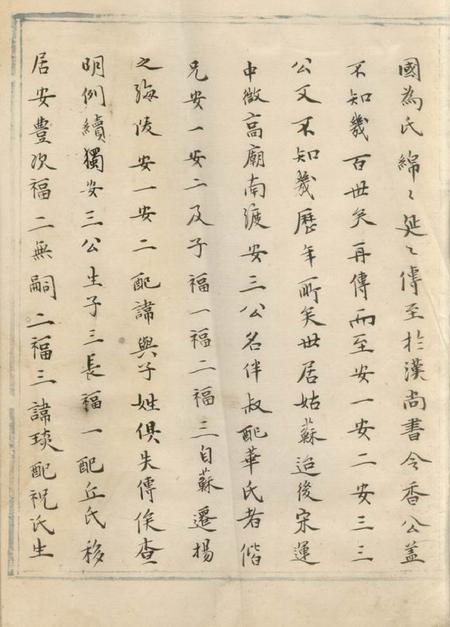 國為氏綿〻延〻傳至於漢尚書令香公蓋
不知幾百世矣再傳而至安一安二安三三
公又不知幾歷年所矣世居姑蘇迨後宋運
中微高廟南渡安三公名伴叔配華氏者偕
兄安一安二及子福一福二福三自蘇遷揚
之海陵安一安二配諱與子姓俱失傳俟查
明例續獨安三公生子三長福一配丘氏移
居安豐次福二無嗣二福三諱琰配祝氏生